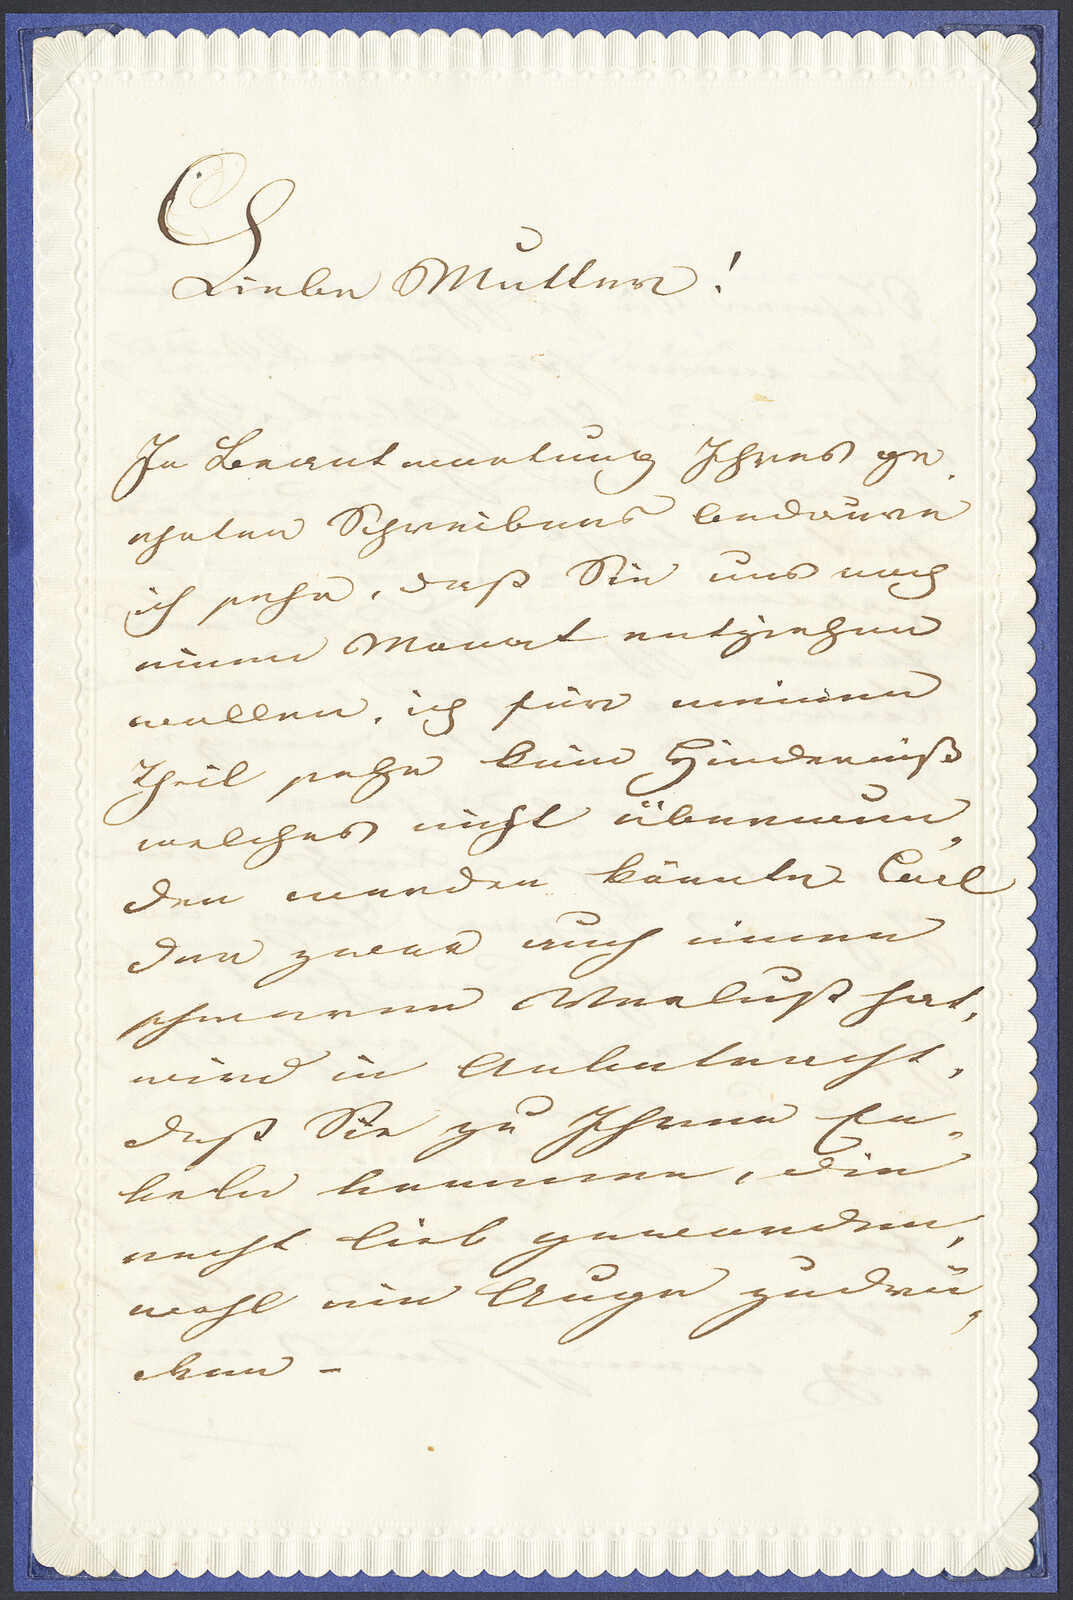 Liebe Mutter!
In Beantwortung Ihres ge-
ehrten Schreibens bedaure
ich sehr, daß Sie uns noch
einen Monat entziehen
wollen, ich für meinen
Theil sehe kein Hinderniß
welches nicht überwun-
den werden könnte. Carl
der zwar auch einen
schweren Verlust hat,
wird in Anbetracht,
daß Sie zu Ihren En-
keln kommen, die
recht lieb geworden,
wohl ein Auge zudrü-
cken –